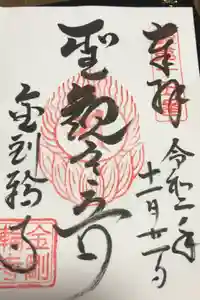 奉拝
令和二年
十一月廿一日
聖観世音
金剛輪寺
金剛
輪寺